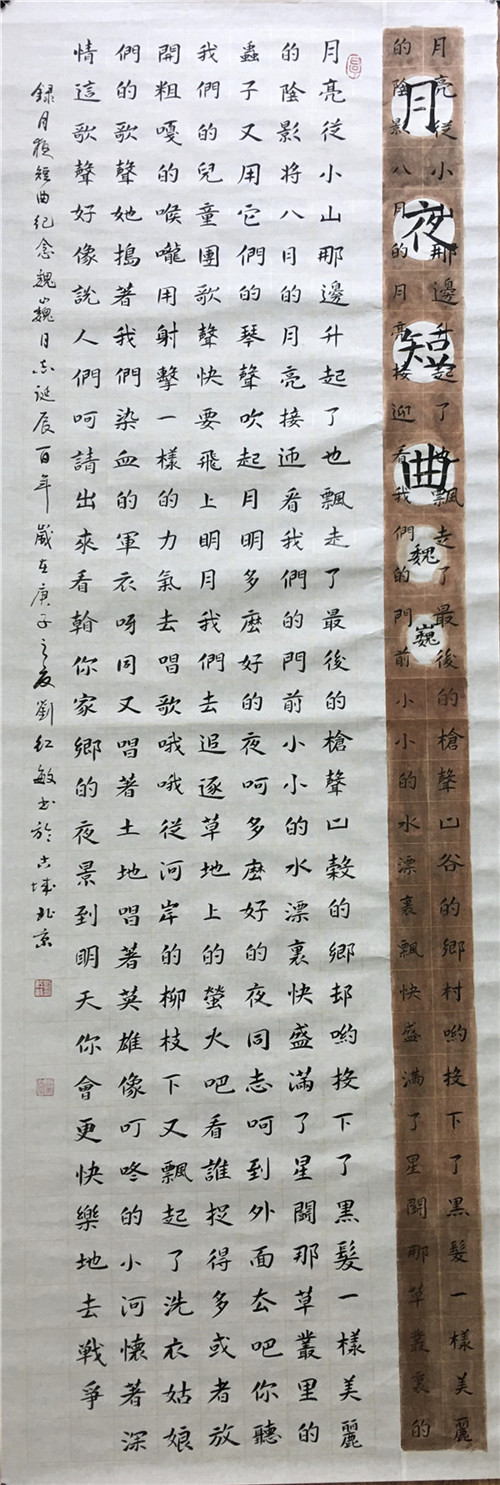 月夜短曲
魏巍
月亮從小山那邊升起了也飄走了最後的槍聲山谷的鄉村喲投下了黑髮一樣美麗
的陰影八月的月亮接迎看我們的門前小小的水漂裏飄快盛滿了星鬪那草叢裏的
月亮從小山那邊升起了也飄走了最後的槍聲山穀的鄉邨喲投下了黑髮一樣美麗
的陰影將八月的月亮接迊看我們的門前小小的水漂裏快盛滿了星鬪那草叢里的
蟲子又用它們的琴聲吹起月明多麽好的夜呵多麽好的夜同志呵到外面去吧你聽
我們的兒童團歌聲快要飛上明月我們去追逐草地上的螢火吧看誰捉得多或者放
開粗嗄的喉嚨用射擊一樣的力氣去唱歌哦哦從河岸的柳枝下又飄起了洗衣姑娘
們的歌聲她搗著我們染血的軍衣呀同又唱著土地唱著英雄像叮咚的小河懷著深
情這歌聲好像說人們呵請出來看翰你家鄉的夜景到明天你會更快樂地去戰爭
録月夜短曲紀念魏巍同志誕辰百年歲在庚子之夏劉紅敏書於古城北京